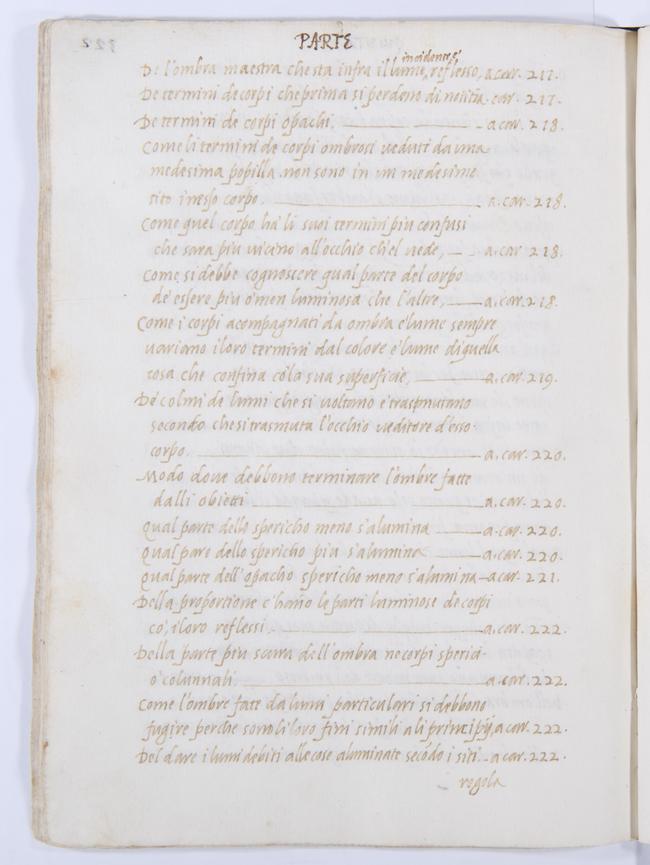 PARTE
incidente, e'
De l'ombra maestra che sta infra il lume, reflesso, a car. 217.
De termini de corpi che prima si perdeno di notitia. car. 217.
De termini de corpi opachi. a car. 218.
Come li termini de corpi ombrosi ueduti da una
medesima popilla non sono in un medesimo
sito in esso corpo. a. car. 218.
Come quel corpo ha li suoi termini piu confusi
che sara piu uicino all'occhio ch'el uede, a. car. 218.
Come si debbe cognoscere qual parte del corpo
de' essere piu o' men luminosa che l'altre, a. car. 218.
Come i corpi acompagnati da ombra e' lume sempre
uariano i loro termini dal colore e' lume di quella
cosa che confina cõ la sua superficie, a. car. 219.
De' colmi de lumi che si uoltano e' trasmutano
secondo che si trasmuta l'occhio ueditore d'esso
corpo. a. car. 220.
Modo doue debbono terminare l'ombre fatte
dalli obietti a. car. 220.
Qual parte dello spericho meno s'alumina a. car. 220.
Qual pare dello spericho piu s'alumina a. car. 220.
Qual parte dell'opacho spericho meno s'alumina a car. 221.
Della proportione c'hanno le parti luminose de corpi
co', i loro reflessi. a. car. 222.
Della parte piu scura dell'ombra ne corpi sperici
o' colunnali. a. car. 222.
Come l'ombre fate da lumi particulari si debbono
fugire perche sono li loro fini simili a li principij, a car. 222.
Del dare i lumi debiti alle cose aluminate secõdo i siti. a car. 222.
regola